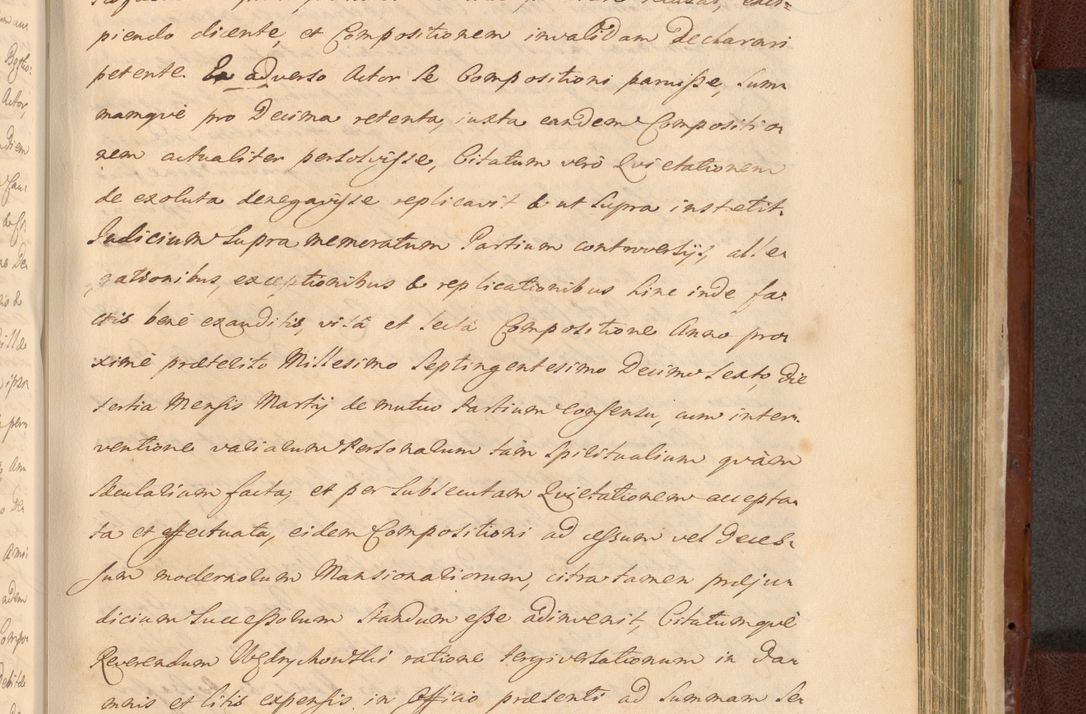 piendo dicente, et Compositionem invalidam Declarari
petente. Ex adverso Actor se Compositioni paruisse, Sum
mamquè pro Decima retenta, iuxta eandem Compositio
nem actualiter persolvisse, Citatum verò Quietationem
de exoluta denegavisse replicavit & ut supra institit.
Judicium Supra memoratum Partium controversijs, alle
gationibus, exceptionibus & replicationibus hinc inde fa
ctis benè exauditis, visâ et lectâ Compositione Anno pro
ximè præterito Millesimo Septingentesimo Decimo Sexto Die
tertia Mensis Martij de mutuo Partium Consensu, cum inter
ventione variarum Personarum tàm Spiritualium quàm
Sæcularium facta, et per subsecutam Quietationem accepta
ta et effectuata, eidem Compositioni ad cessum vel Deces
sum modernorum Mansionariorum, citra tamen præju
dicium Successorum standum esse adinvenit, Citatumquè
Reverendum Wędrychowski ratione tergiversationum in Da
mnis et litis expensis in Officio præsenti ad Summam Se